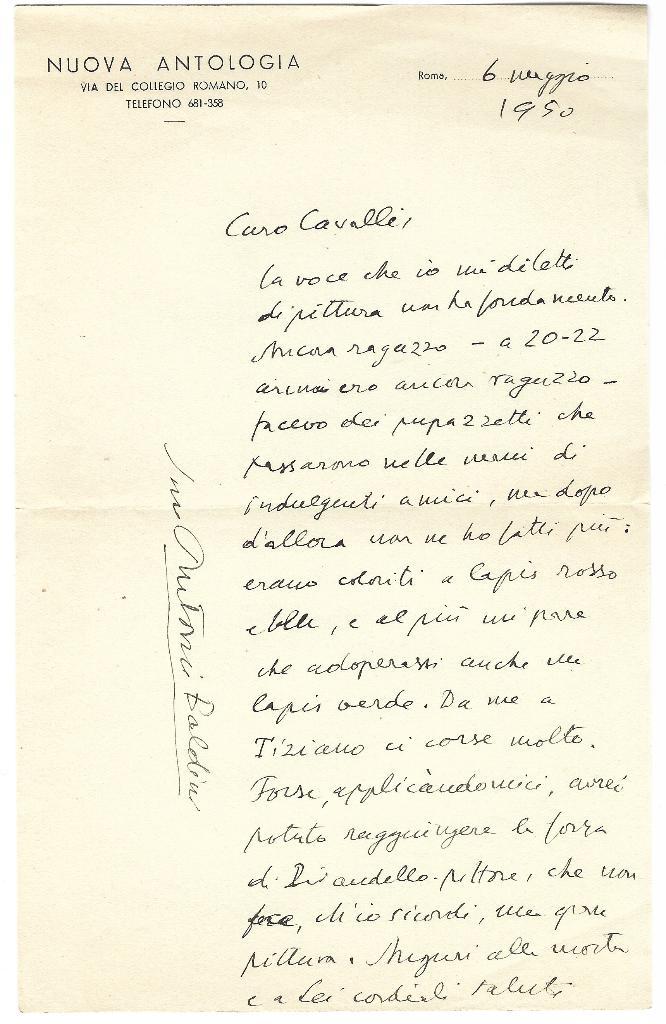 NUOVA ANTOLOGIA
VIA DEL COLLEGIO ROMANO, 10
TELEFONO 681-358
Roma, 6 maggio
1950
Caro Cavalli,
la voce che io mi diletti
di pittura non ha fondamento.
Ancora ragazzo – a 20-22
anni ero ancora ragazzo –
facevo dei pupazzetti che
passarono nelle mani di
indulgenti amici, ma dopo
d'allora non ne ho fatti più:
erano coloriti a lapis rosso
e blu, e al più mi pare
che adoperassi anche un
lapis verde. Da me a
Tiziano ci corse molto.
Forse, applicàndomici, avrei
potuto raggiungere la forza
di Pirandello-pittore, che non
fece, ch'io ricordi, una gran
pittura. Auguri alla mostra
e a Lei cordiali saluti
suo Antonio Baldini